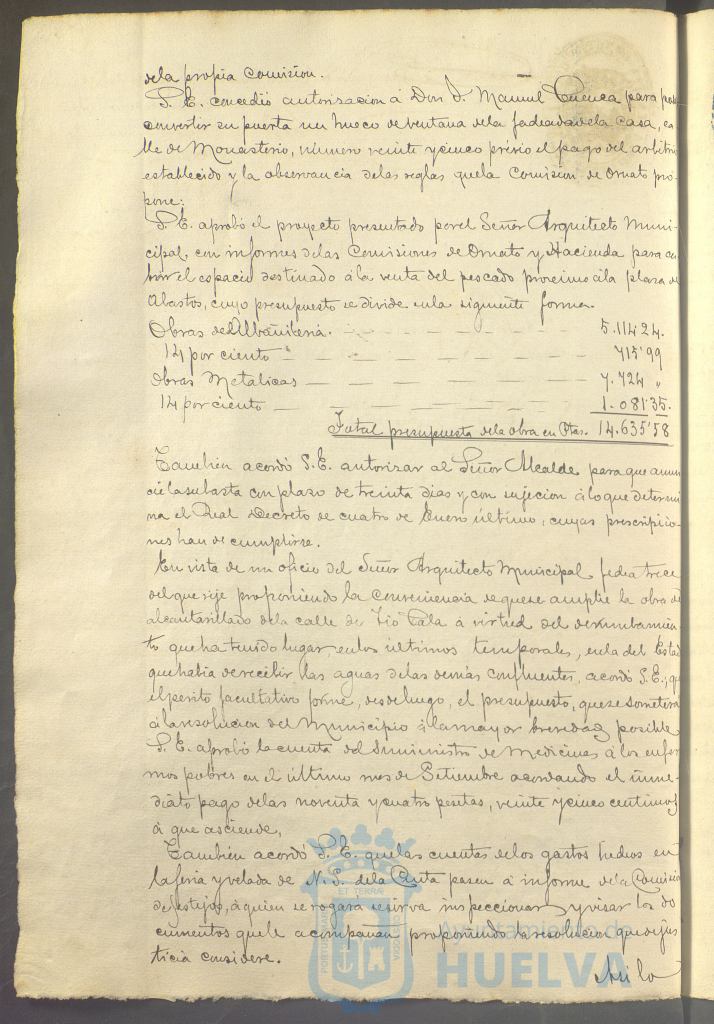 dela propia comision.
S. E. concedió autorizacion á Don J. Manuel Cuenca para
convertir en puerta un hueco de ventana dela fachada dela casa, ca-
lle de Monasterio, número veinte y cinco prévio el pago del arbitrio
establecido y la observancia delas reglas quela Comision de Ornato pro-
pone:
S. E. aprobó el proyecto presentado porel Señor Arquitecto Muni-
cipal, con informes delas Comisiones de Ornato y Hacienda para cu-
brir el espacio destinado á la venta del pescado proximo ála plaza de
Abastos, cuyo presupuesto se divide enla siguiente forma.
Obras de Albañileria. 5.114 24.
14 por ciento 715'99
Obras Metalicas 7.724 "
14 por ciento 1.081'35.
Total presupuesto dela obra en Ptas. 14.635'58
Tambien acordó S. E. autorizar al Señor Alcalde para que anun-
cie la subasta con plazo de treinta dias y con sujecion álo que determi-
na el Real Decreto de cuatro de Enero último, cuyas prescripcio-
nes han de cumplirse.
En vista de un oficio del Señor Arquitecto Municipal fecha trece
del que rije proponiendo la conveniencia de que se amplie la obra de
alcantarillado dela calle de Tio Cala á virtud del derrumbamien-
to que ha tenido lugar enlos últimos temporales, enla del
que habia de recibir las aguas delas demás confluentes, acordó S. E., que
el perito facultativo forme, desde luego, el presupuesto, que se someterá
á la resolucion del Municipio á la mayor brevedad posible
S. E. aprobó la cuenta del suministro de Medicinas á los enfer-
mos pobres en el último mes de Setiembre acordando el inme-
diato pago delas noventa y cuatro pesetas, veinte y cinco centimos
á que asciende,
Tambien acordó S. E. que las cuentas delos gastos hechos en
la feria y velada de N. S. dela Cinta pasen á informe dela Comision
de festejos, á quien se rogará se sirva inspeccionar y visar los do-
cumentos quele acompañan proponiendo la resolucion que en jus-
ticia considere.
Asilo
PORTUS MARIS
ET TERRÆ
CUSTODIA
Ayuntamiento de
HUELVA